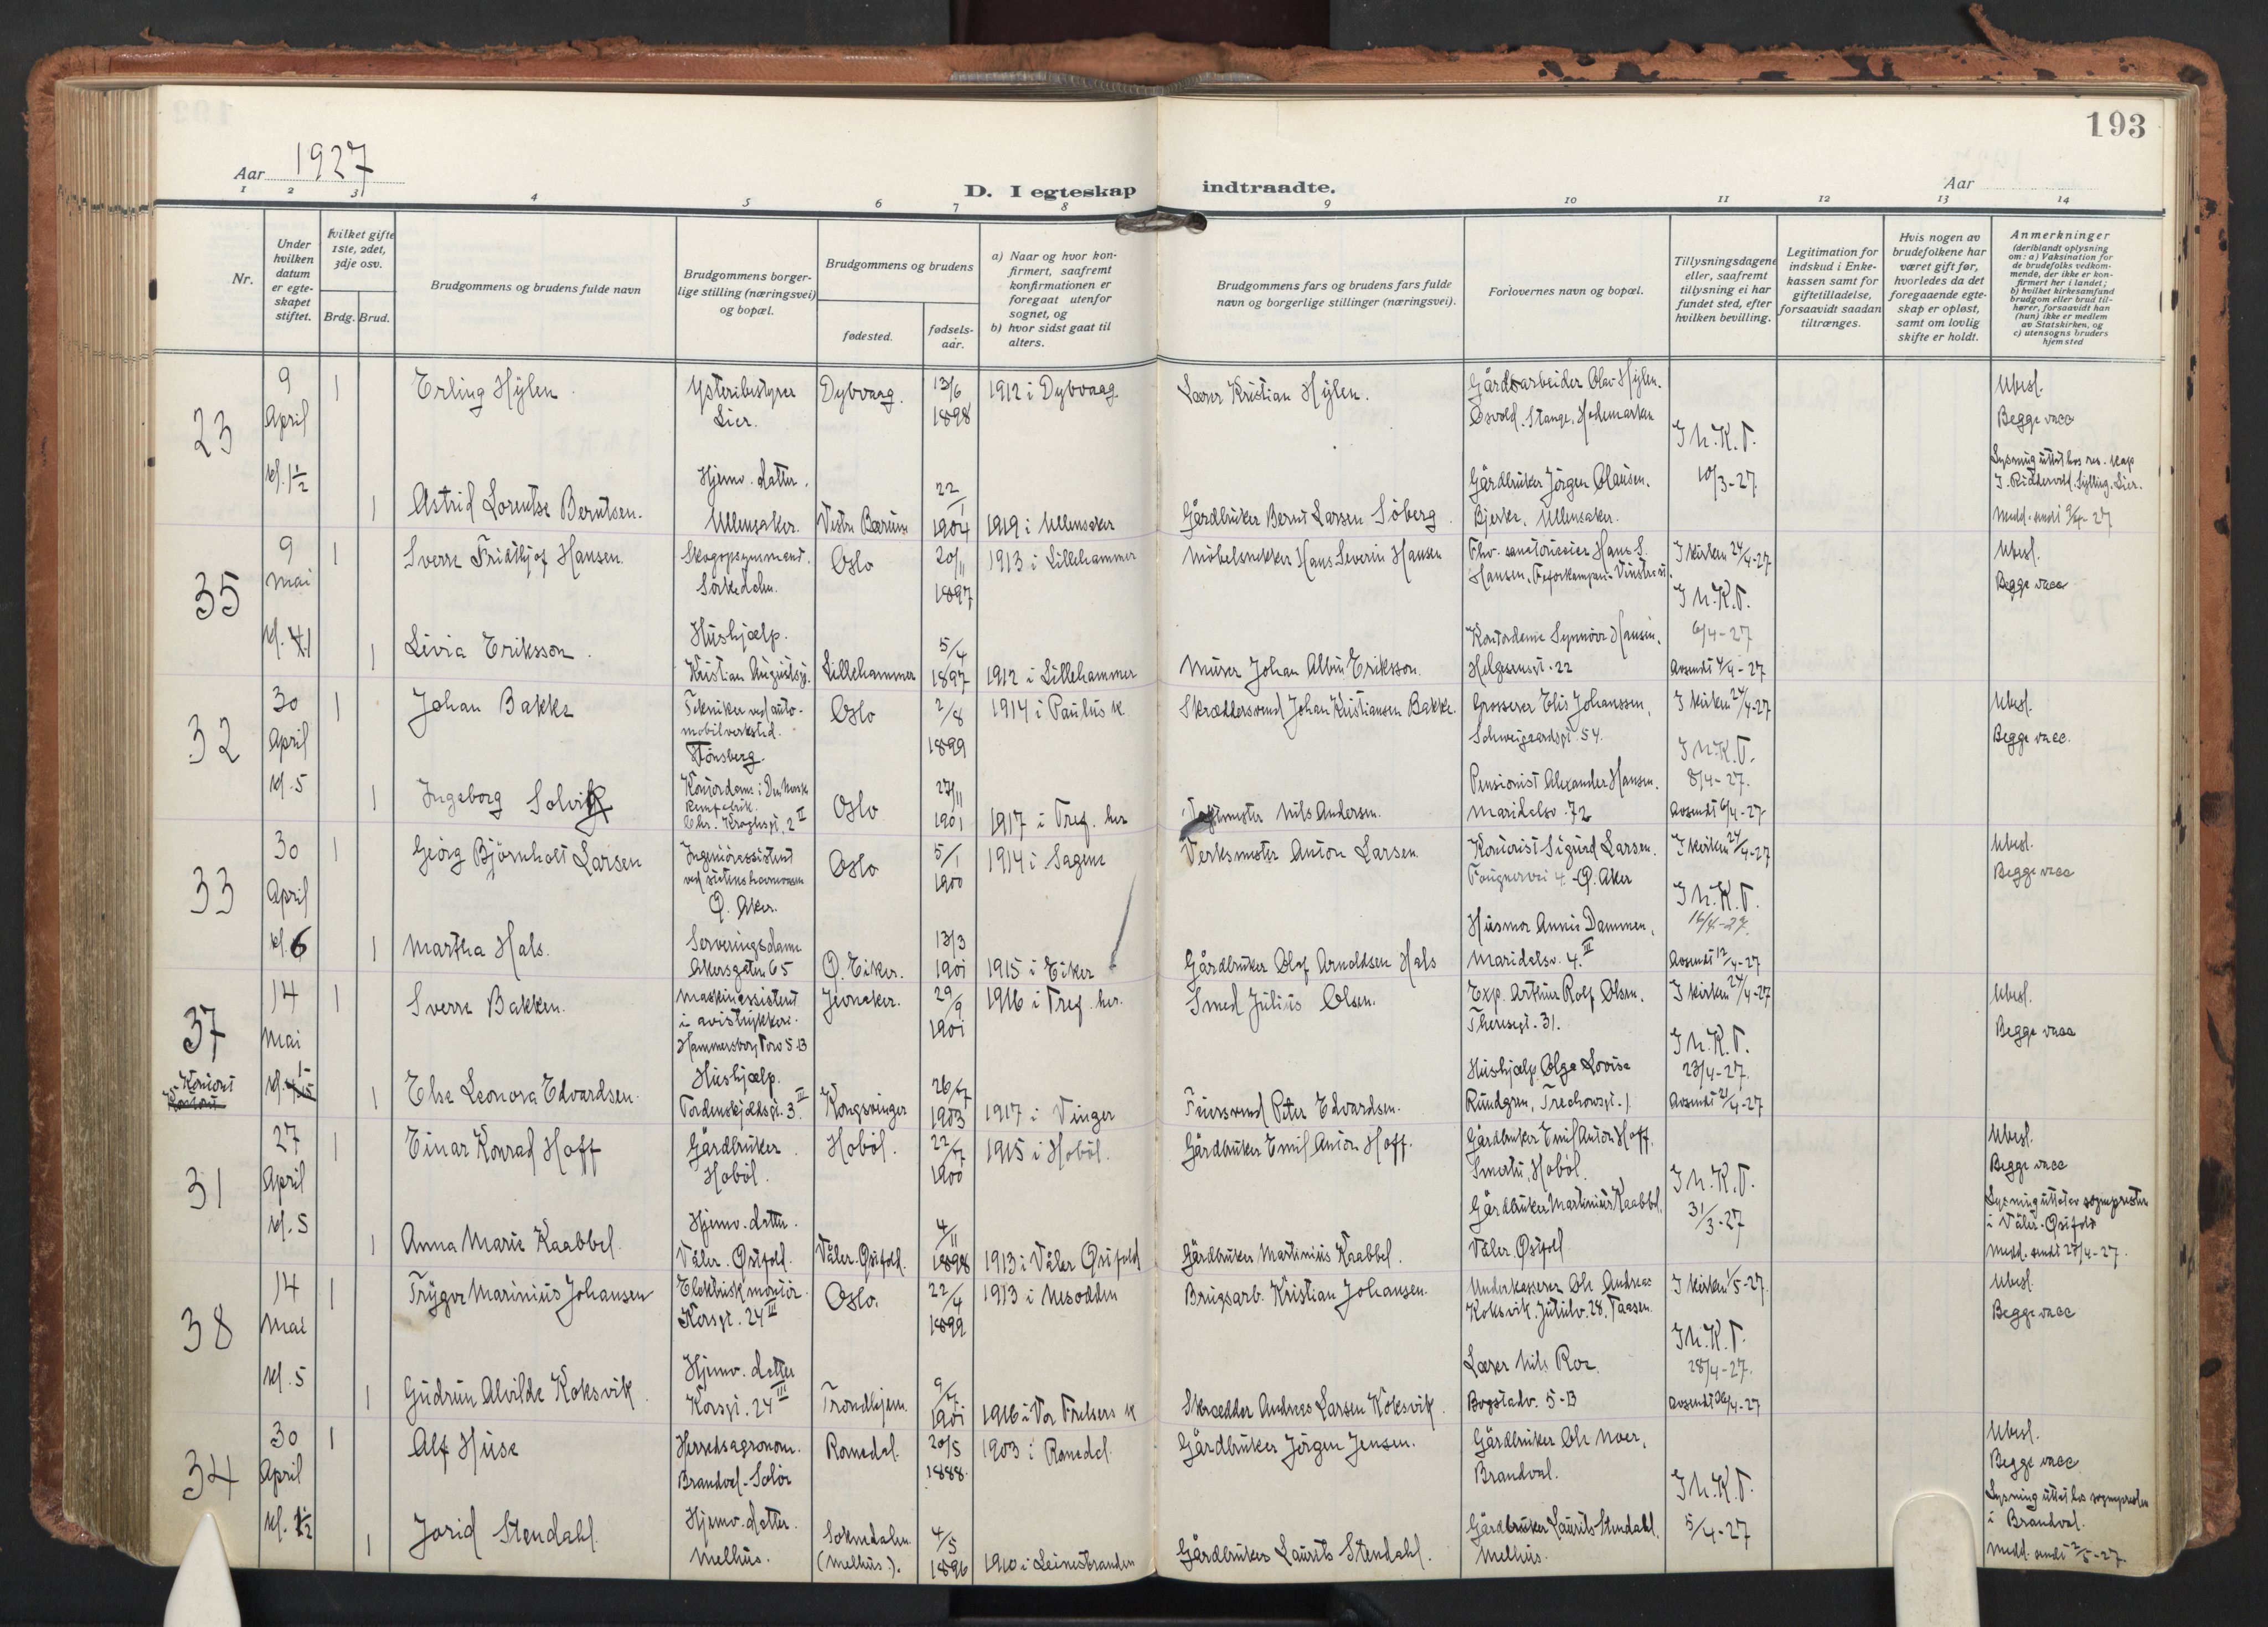 193
Aar 1927
Aar
D. I egteskap indtraadte.
1 2 3 4 5 6 7 8 9 10 11 12 13 14
Nr.
Under hvilken datum er egte- skapet stiftet.
hvilket gifte 1ste, 2det, 3dje osv.
Brdg. Brud.
Brudgommens og brudens fulde navn
Brudgommens borger- lige stilling (næringsvei) og bopæl.
Brudgommens og brudens
fødested.
fødsels- aar.
a) Naar og hvor kon- firmert, saafremt konfirmationen er foregaat utenfor sognet, og
b) hvor sidst gaat til alters.
Brudgommens fars og brudens fars fulde navn og borgerlige stillinger (næringsvei).
Forlovernes navn og bopæl.
Tillysningsdagene eller, saafremt tillysning ei har fundet sted, efter hvilken bevilling.
Legitimation for indskud i Enke- kassen samt for giftetilladelse, forsaavidt saadan tiltrænges.
Hvis nogen av brudefolkene har været gift før, hvorledes da det foregaaende egte- skap er opløst, samt om lovlig skifte er holdt.
Anmerkninger (deriblandt oplysning om: a) Vaksination for de brudefolks vedkom- mende, der ikke er kon- firmert her i landet; b) hvilket kirkesamfund brudgom eller brud til- hører, forsaavidt han (hun) ikke er medlem av Statskirken, og c) utensogns bruders hjemsted
23 9 April kl. 1½
1 Erling Hylen. Ysteribestyrer Lier. Dybvaag. 13/6 1898 1912 i Dybvaag. Læser Kristian Hylen. Gårdsarbeider Olav Hylen. Osvold. Stange. Hedemarken I h.K.T. 10/3-27 Ubesl. Begge vacc
Lysning uttat hos res. kap J. Ridderwold. Sylling. Lier. Medd. sendt 9/4-27
1 Astrid Lorentse Berntsen. Hjemv. datter. Ullensaker. Vestre Bærum 22/1 1904 1919 i Ullensaker Gårdbruker Bernt Larsen Söberg. Gårdbruker Jörgen Olausen. Bjerke. Ullensaker.
35 9 Mai kl. 1
1 Sverre Fridthjof Hansen. Skogopsynsmand. Sörkedalen. Oslo 20/11 1897 1913 i Lillehammer Möbelsnekker Hans Severin Hansen Fhv. sanatorieeier Hans S. Hansen. I kirken 24/4-27 I h.K.T. 6/4-27 Avsendt 4/4-27 Ubesl. Begge vacc
1 Livia Eriksson. Hushjælp. Kristian Augustsg. Lillehammer 5/4 1897 1912 i Lillehammer Murer Johan Albin Eriksson. Kontordame Synnöve Hansen. Helgesensgt. 22
32 30 April kl. 5
1 Johan Bakke Tekniker ved auto- mobilverksted. Tönsberg. Oslo 2/8 1899 1914 i Paulus k. Skræddersvend Johan Kristiansen Bakke. Grosserer Elis Johanssen, Schweigaardsgt. 54. I kirken 24/4-27 I h.K.T. 8/4-27. Avsendt 6/4-27 Ubesl. Begge vacc.
1 Ingeborg Solvig Kontordame i Den Norske Chr. Kroghsgt. 2 II Oslo 27/11 1901 1917 i Tref. her Nils Andersen. Pensionist Alexander Hansen. Maridalsv. 72
33 30 April kl. 6
1 Georg Björnholt Larsen Ingeniörassistent ved statens havnevæsen Ö. Aker. Oslo 5/1 1900 1914 i Sagene Verksmester Anton Larsen. Kontorist Sigurd Larsen. Fougnervei 4. Ö. Aker I kirken 24/4-27 I h.K.T. 16/4-27. Avsendt 12/4-27 Ubesl. Begge vacc
1 Martha Hals. Serveringsdame Akersgaten 65 Ö. Eiker. 13/3 1901 1915 i Eiker Gårdbruker Olaf Arnoldsen Hals Husmor Annie Dammen, Maridalsv. 4. III
37 Kontoret 14 Mai kl.
1 Sverre Bakken. Maskinassistent i avistrykkeri. Hammersborg Torv 5 B Jevnaker. 29/9 1901 1916 i Tref. her. Smed Julius Olsen. Exp. Arthur Rolf Olsen. Theresegt. 31. I kirken 24/4-27 I h.K.T. 23/4-27. Avsendt 21/4-27 Ubesl. Begge vacc
1 Else Leonora Edvardsen. Hushjælp. Tordenskjoldsgt. 3. III Kongsvinger 26/7 1903 1917 i Vinger Peter Edvardsen. Hushjælp Olga Lovise Rundgren, Treschowsgt. 1
31 27 April kl. 5
1 Einar Konrad Hoff Gårdbruker. Hoböl. Hoböl. 22/7 1900 1915 i Hoböl. Gårdbruker Emil Anton Hoff. Gårdbruker Emil Anton Hoff. Hoböl. I h.K.T. 31/3-27 Ubesl. Begge vacc
Lysning uttat av sogneprester i Våler. Östfold Medd. sendt 27/4-27.
1 Anna Marie Kaabbel. Hjemv. datter. Våler. Östfold. Våler. Östfold. 4/11 1898 1913 i Våler Östfold Gårdbruker Martinius Kaabbel. Gårdbruker Martinius Kaabbel, Våler. Östfold
38 14 Mai kl. 5
1 Trygve Marinius Johansen Elektrisk montör. Korsgt. 24 III Oslo. 22/4 1899 1913 i Nesodden Brugsarb. Kristian Johansen. Underkasserer Ole Andreas Koksvik. Jutulv. 28. Taasen. I kirken 1/5-27. I h.K.T. 28/4-27. Avsendt 26/4-27 Ubesl. Begge vacc
1 Gudrun Alvilde Koksvik. Hjemv. datter Korsgt. 24 III Trondhjem. 9/7 1901 1916 i Vor Frelsers k Skrædder Andreas Larsen Koksvik. Læser Nils Roe. Bogstadv. 5-B
34 30 April kl. 1½
1 Alf Huse Herredsagronom. Brandval-Solör Romedal. 20/5 1888. 1903 i Romedal Gårdbruker Jörgen Jensen. Gårdbruker Ole Moer, Brandval. I h.K.T. 5/4-27 Ubesl. Begge vacc
Lysning uttat hos sognepresten i Brandval. Medd. sendt 2/5-27.
1 Jorid Stendahl. Hjemv. datter. Melhus. Soknedalen (Melhus). 4/5 1896 1910 i Leinestranden Gårdbruker Laurits Stendahl. Gårdbruker Laurits Stendahl. Melhus.